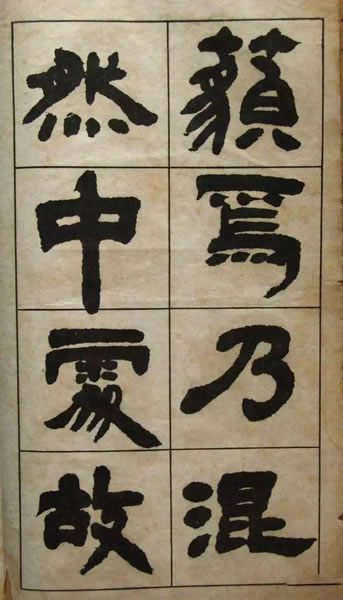 藐焉乃混
然中處故